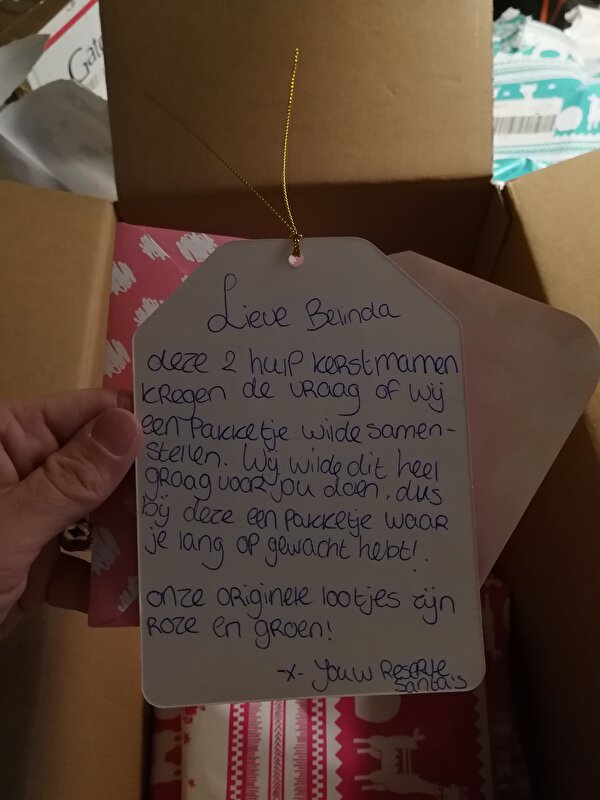 Gate
Lieve Belinda
deze 2 hulp kerstmannen
kregen de vraag of wij
een pakketje wilde samen-
stellen. Wij wilde dit heel
graag voor jou doen, dus
bij deze een pakketje waar
je lang op gewacht hebt!
onze originele lootjes zijn
roze en groen!
-x- Jouw Reserve
Santa's